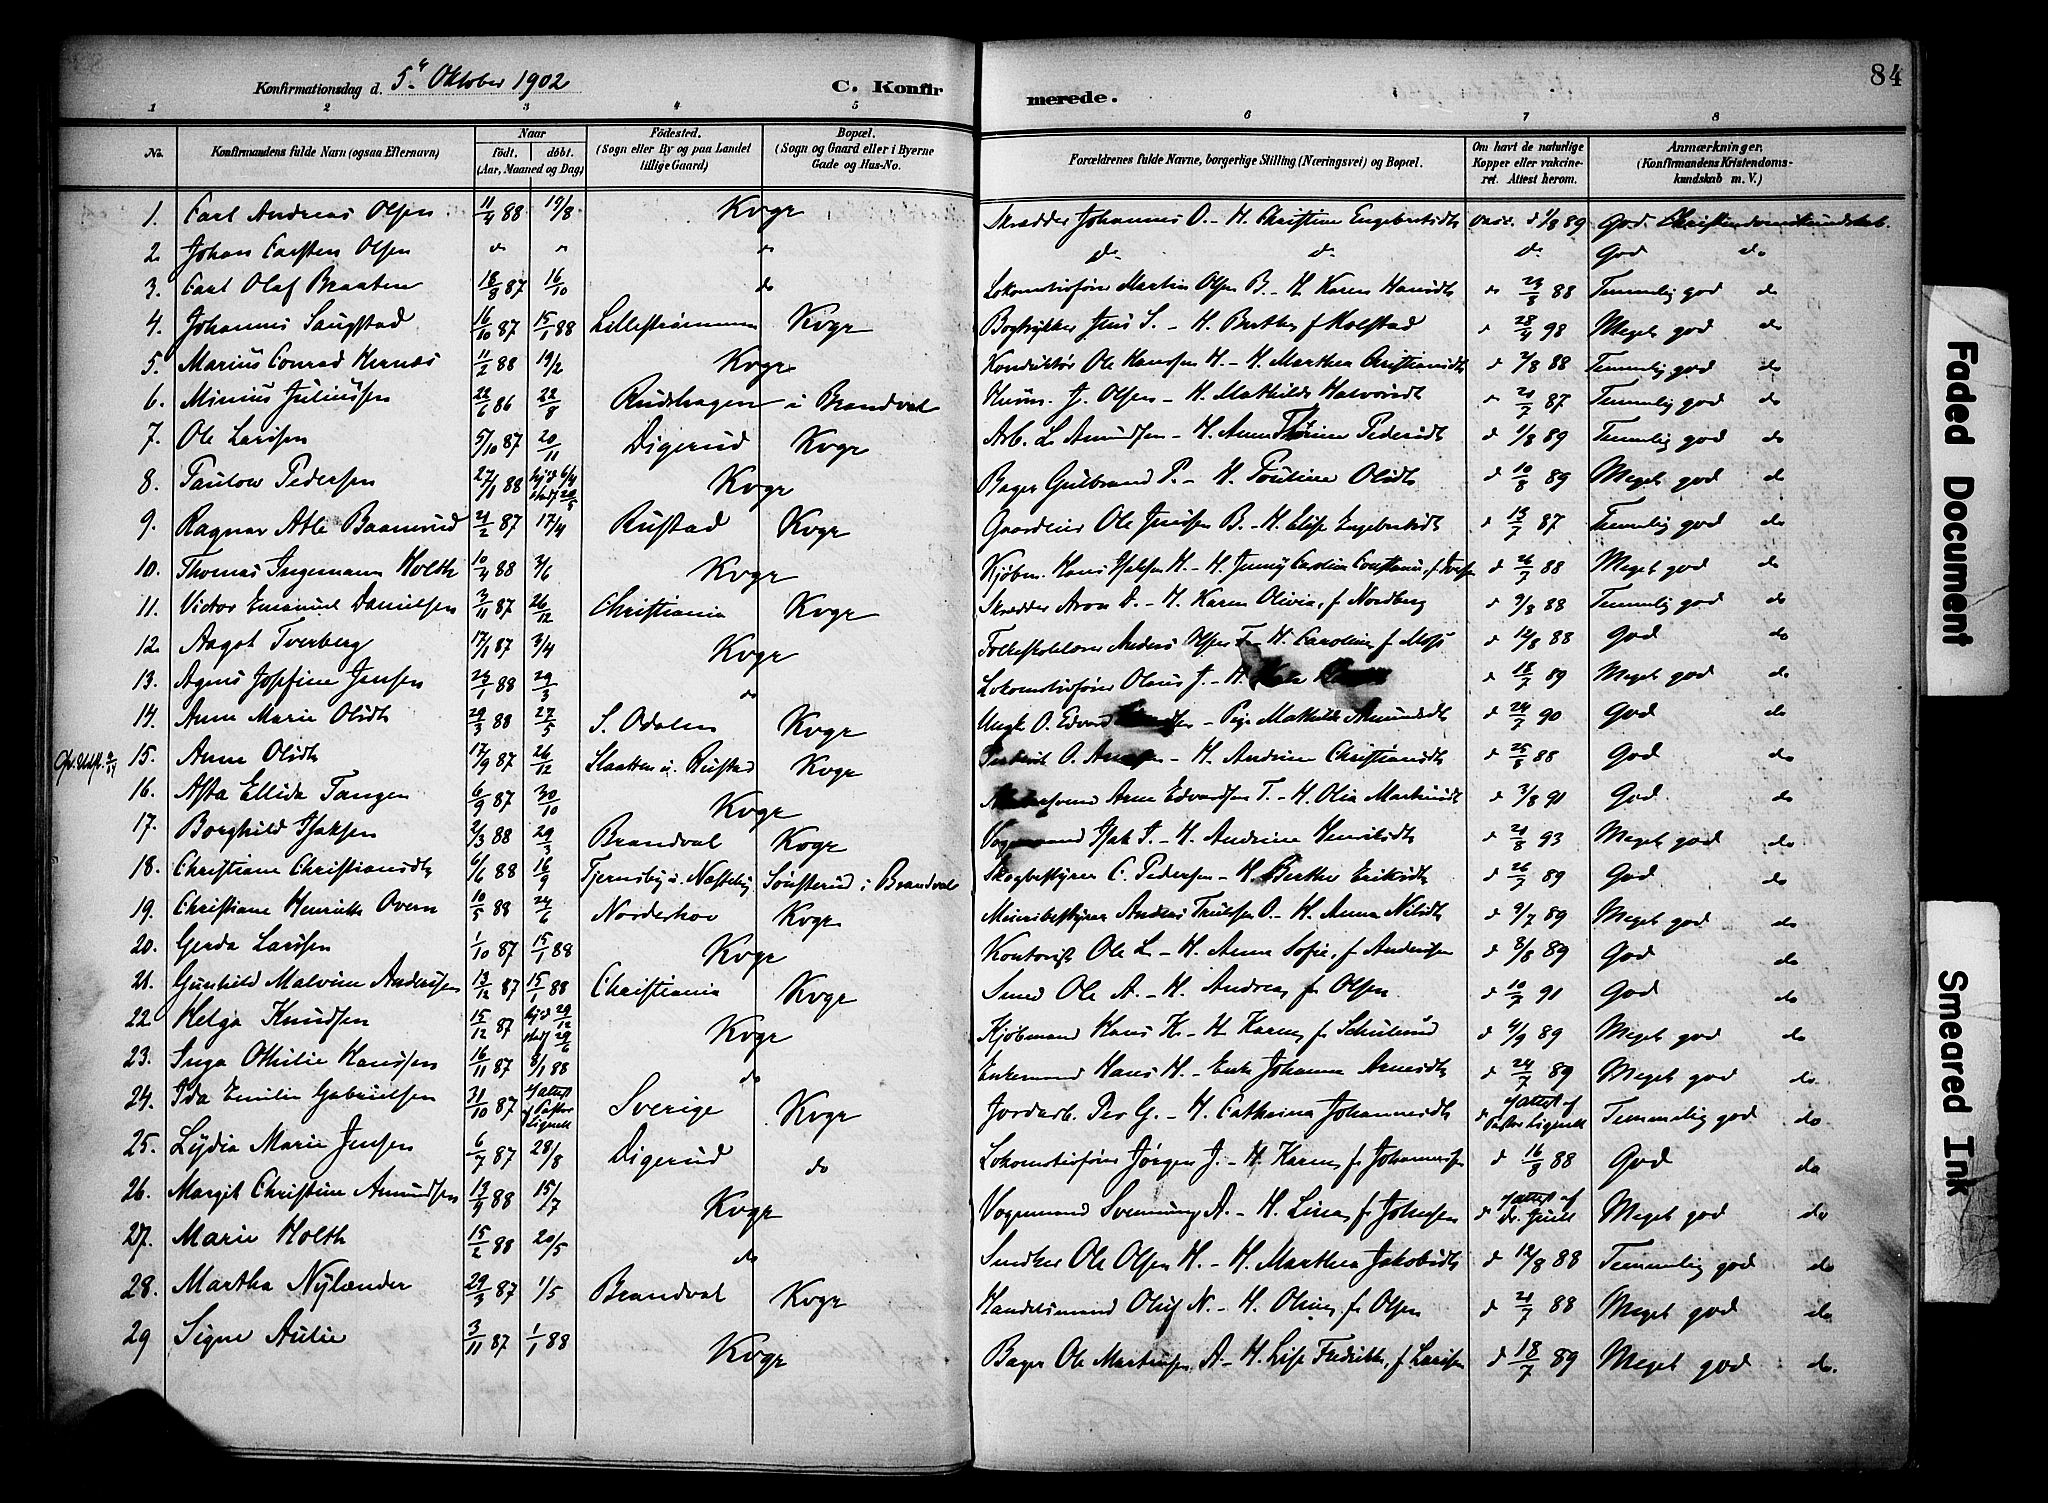 Konfirmationsdag d. 5te Oktober 1902 C. Konfirmerede. 84
1 2 3 4 5 6 7 8
No. Konfirmandens fulde Navn (ogsaa Efternavn) Naar født. døbt. (Aar, Maaned og Dag) Fødested. (Sogn eller By og paa Landet tillige Gaard) Bopæl. (Sogn og Gaard eller i Byerne Gade og Hus-No. Forældrenes fulde Navne, borgerlige Stilling (Næringsvei) og Bopæl. Om havt de naturlige Kopper eller vakcineret. Attest herom. Anmærkninger. (Konfirmandens Kristendomskundskab m. V.)
1. Carl Andreas Olsen 11/4 88 19/8 Kvgr Skrædder Johannes O. - H. Christine Engebretsdt vacc. d 1/8 89 God Christendomskundskab.
2. Johan Carsten Olsen do do do do do do God do
3. Carl Olaf Braaten 18/8 87 16/10 do Lokomotivfører Martin Olsen B. - H. Karen Hansdt d 23/8 88 Temmelig god do
4. Johannes Saugstad 16/10 87 15/1 88 Lillestrømmen Kvgr Bogtrykker Jens S. - H. Berthe f Kolstad d 28/4 98 Meget god do
5. Marius Conrad Hernæs 11/2 88 19/2 Kvgr Konduktør Ole Hanssen H. - H. Marthea Christiansdt d 2/8 88 Temmelig god do
6. Minius Juliussen 22/6 86 22/8 Rudshagen i Brandval Huusm. J. Olsen - H. Mathilde Halvorsdt d 21/7 87 Temmelig god do
7. Ole Larssen 5/10 87 20/11 Digerud Kvgr Arb. L. Amundsen - H. Anne Thorine Pedersdt d 1/8 89 Temmelig god do
8. Paulow Pedersen 27/1 88 hjd 6/4 stadf 20/5 Kvgr Bager Gulbrand P. - H. Pouline Olsdt d 10/8 89 Meget god do
9. Ragnar Atle Baamrud 21/2 87 17/4 Rustad Kvgr Gaardeier Ole Jenssen B. - H. Elise Engebretsdt d 13/7 87 Temmelig god do
10. Thomas Ingemann Holth 10/4 88 3/6 Kvgr Kjøbm. Hans Isaksen H. - H. Jenny Caroline Constance, f. Iversen d 26/7 88 Meget god do
11. Victor Emanuel Danielsen 3/11 87 26/12 Christiania Kvgr Skrædder Aron D. - H. Karen Olivia, f Nordberg d 9/8 88 Temmelig god do
12. Aagot Tverberg 17/1 87 3/4 Kvgr Folkeskolelærer Anders Olsen T - H. Caroline f Moss d 12/8 88 God do
13. Agnes Josefine Jensen 23/1 88 29/3 do Lokomotivfører Olaus J. - H. d 18/7 89 Meget god do
14. Anne Marie Olsdt 29/3 88 27/5 S. Odalen Kvgr Ungk. O. Edvard - Pige Mathilde Amundsdt d 24/7 90 God do
15. Anne Olsdt 17/9 87 26/12 Slaatten u. Rustad Kvgr O. - H. Andrine Christiansdt d 25/8 88 God do
16. Asta Ellida Tangen 6/9 87 30/10 Kvgr Arne Edvardsen T. - H. Olia Martinsdt d 3/8 91 God do
17. Borghild Isaksen 2/3 88 29/3 Brandval Kvgr Vognmand Isak I. - H. Andrine Henriksdt d 21/8 93 Meget god do
18. Christiane Christiansdt 6/6 88 16/9 Tjernsby u. Næsteby Sønsterud i Brandval Skogbestyrer C. Pedersen - H. Berthe Eriksdt d 26/7 89 God do
19. Christiane Henriette Overn 10/5 88 24/6 Norderhov Kvgr Meieribestyrer Anders Trulssen O. - H. Anna Nilsdt d 9/7 89 Meget god do
20. Gerda Larssen 1/10 87 15/1 88 Kvgr Kontorist Ole L. - H. Anna Sofie, f Anderssen d 8/8 89 God do
21. Gunhild Malvine Anderssen 13/12 87 15/1 88 Christiania Kvgr Smed Ole A. - H. Andrea f Olsen d 10/7 91 God do
22. Helga Knudsen 15/12 87 hjd 29/12 stadf 29/6 Kvgr Kjøbmand Hans K. - H. Karen f Schulerud d 4/9 89 Meget god do
23. Inga Othilie Hanssen 16/11 87 8/1 88 do Enkemand Hans H. - Enke Johanne Arnesdt d 24/7 89 Meget god do
24. Ida Emilie Gabrielsen 31/10 87 i/attest af Pastor Lignell Sverige Kvgr Jordarb. Per G. - H. Cathrina Johannesdt d i/attest af Pastor Lignell Temmelig god do
25. Lydia Marie Jensen 6/7 87 28/8 Digerud do Lokomotivfører Jørgen J. - H. Karen f Johannessen d 16/9 88 God do
26. Margit Christine Amundsen 13/4 88 15/7 Kvgr Vognmand Svennung A. - H. Lina f Johnsen d i/attest af dr. Juell Meget god do
27. Marie Holth 15/2 88 20/5 do Snedker Ole Olsen H. - H. Marthea Jakobsdt d 12/8 88 Temmelig god do
28. Martha Nylænder 29/3 87 1/5 Brandval Kvgr Handelsmand Oluf N. - H. Oline f Olsen d 21/7 88 Meget god do
29 Signe Aulie 3/11 87 1/1 88 Kvgr Bager Ole Martinsen A - H. Lise Fredrikke, f Larssen d 18/7 89 Meget god do
Faded Document
Smeared Ink